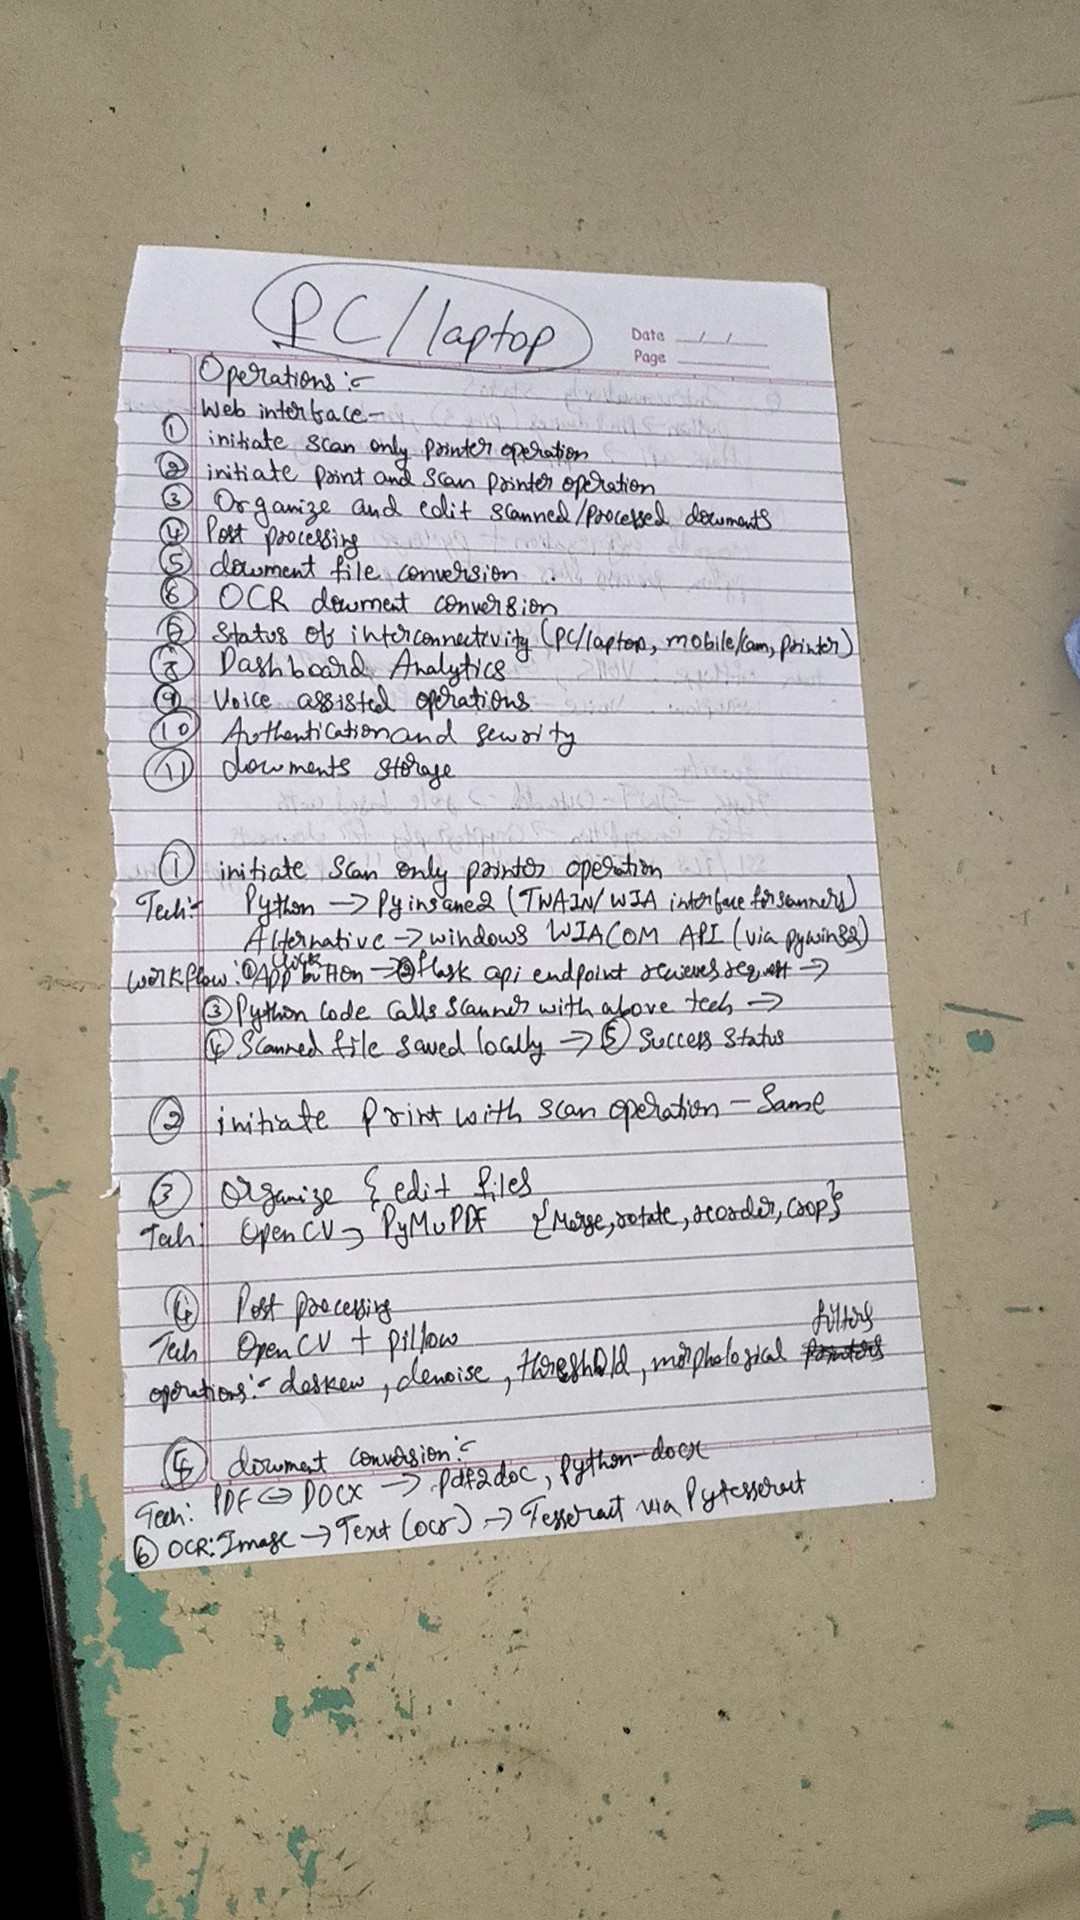 PC/laptop
Date __/__/__
Page ______
Operations :-
Web interface -
① initiate scan only printer operation
② initiate print and scan printer operation
③ Organize and edit scanned/processed documents
④ Post processing
⑤ document file conversion .
⑥ OCR document conversion
Status of interconnectivity (PC/laptop, mobile/cam, printer)
⑧ Dashboard Analytics
⑨ Voice assisted operations
⑩ Authentication and security
⑪ documents storage
① initiate scan only printer operation
Tech:- Python → Pyinsane2 (TWAIN/WIA interface for scanners)
Alternative → windows WIACOM API (via pywin32)
Workflow: ① App click button → ② flask api endpoint receives request →
③ Python code calls scanner with above tech →
④ Scanned file saved locally → ⑤ Success status
② initiate Print with scan operation - Same
③ Organize { edit files
Tech: OpenCV → PyMuPDF {Merge, rotate, reorder, crop}
④ Post processing
Tech OpenCV + pillow
operations:- deskew, denoise, threshold, morphological filters
⑤ document conversion :-
Tech: PDF ⇔ DOCX → pdf2doc, Python-docx
⑥ OCR: Image → Text (ocr) → Tesseract via Pytesseract